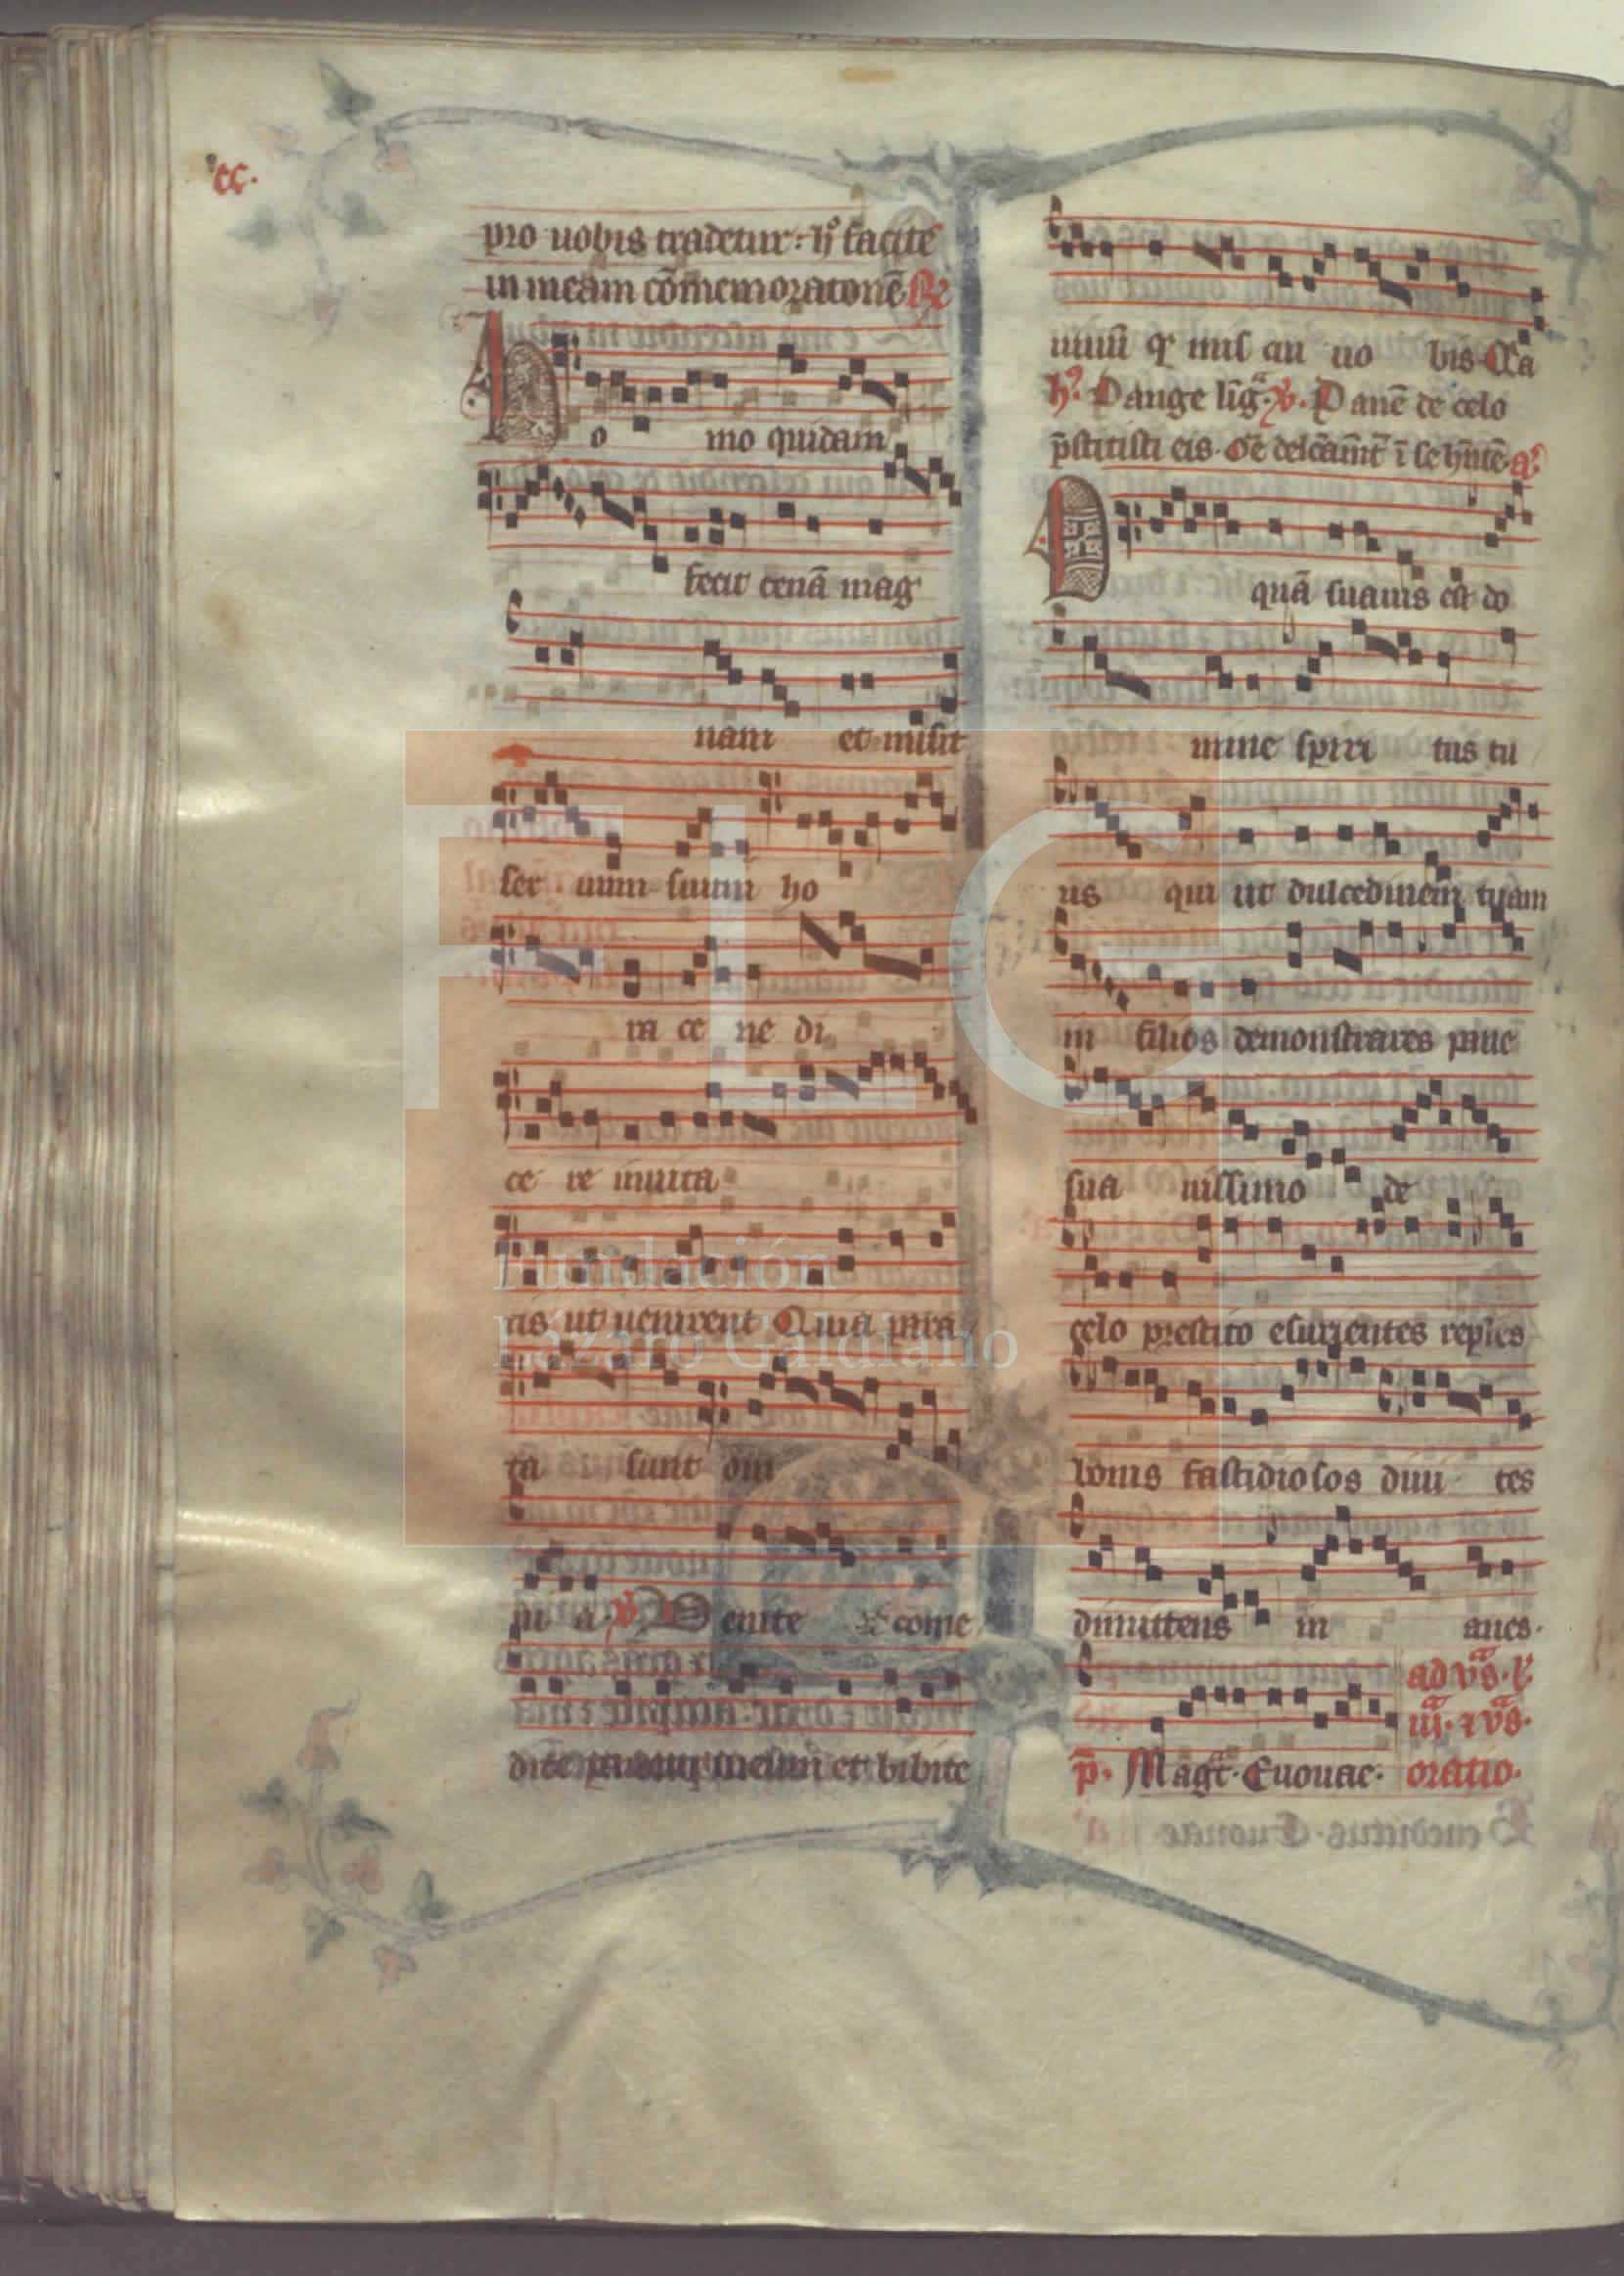 cc.
pro uobis tradetur: h͛ facite
in meam cōmemoratonē R͛
Ho mo quidam
fecit cenā mag
nam et misit
ser uum suum ho
ra ce ne di
ce re inuita
tis ut uenirent Quia para
ta sunt om
ni a. v͛. Uenite come
dite panem meum et bibite
uinū q̄ mis cu uo bis. Q͛a
h͛. Pange lig̃a. v͛. Panē de celo
p̄stitisti eis. Oē delcām̄t ī se hn̄tē. a͛.
O quā suauis est do
mine spiri tus tu
us qui ut dulcedinem tuam
in filios demonstrares pane
sua uissimo de
celo prestito esurientes reples
bonis fastidiosos diui tes
dimittens in anes.
p̄. Mag͛t. Euouae.
ad v͛as. v͛.
iii͛. ⁊ v͛as.
oratio.
Fundación
Lázaro Galdiano
FLG